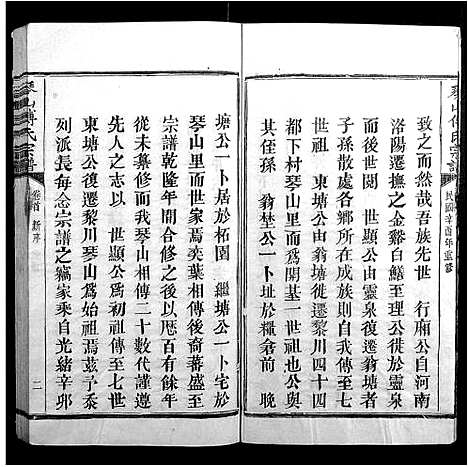 琴山傅氏宗譜
民國辛酉年重修
致之而然哉吾族先世 行廂公自河南
洛陽遷撫之金谿白鱔至曾孫徙於靈泉
再徙於廣 世顯公由靈泉復遷翁塘者
子孫散處各鄉所在成族而我
始祖 東塘公由翁塘遷黎川四十四
都下村琴山里而爲開基 晚
其侄孫 翁埜公一卜址於糧倉前 晚
塘公一卜居於柘園 繼塘公一卜宅於
琴山里而世家焉奕葉相傳後裔蕃盛至
宗譜乾隆年間合修之後以歷百有餘年
從未纂修而我琴山相傳二十數代謹遵
先人之志以 世顯公爲始祖傳至七世
東塘公復遷黎川琴山爲始祖焉茲予忝
列派長每念宗譜之竊家乘自光緒辛卯
琴山傅氏宗譜
卷首 新序
二